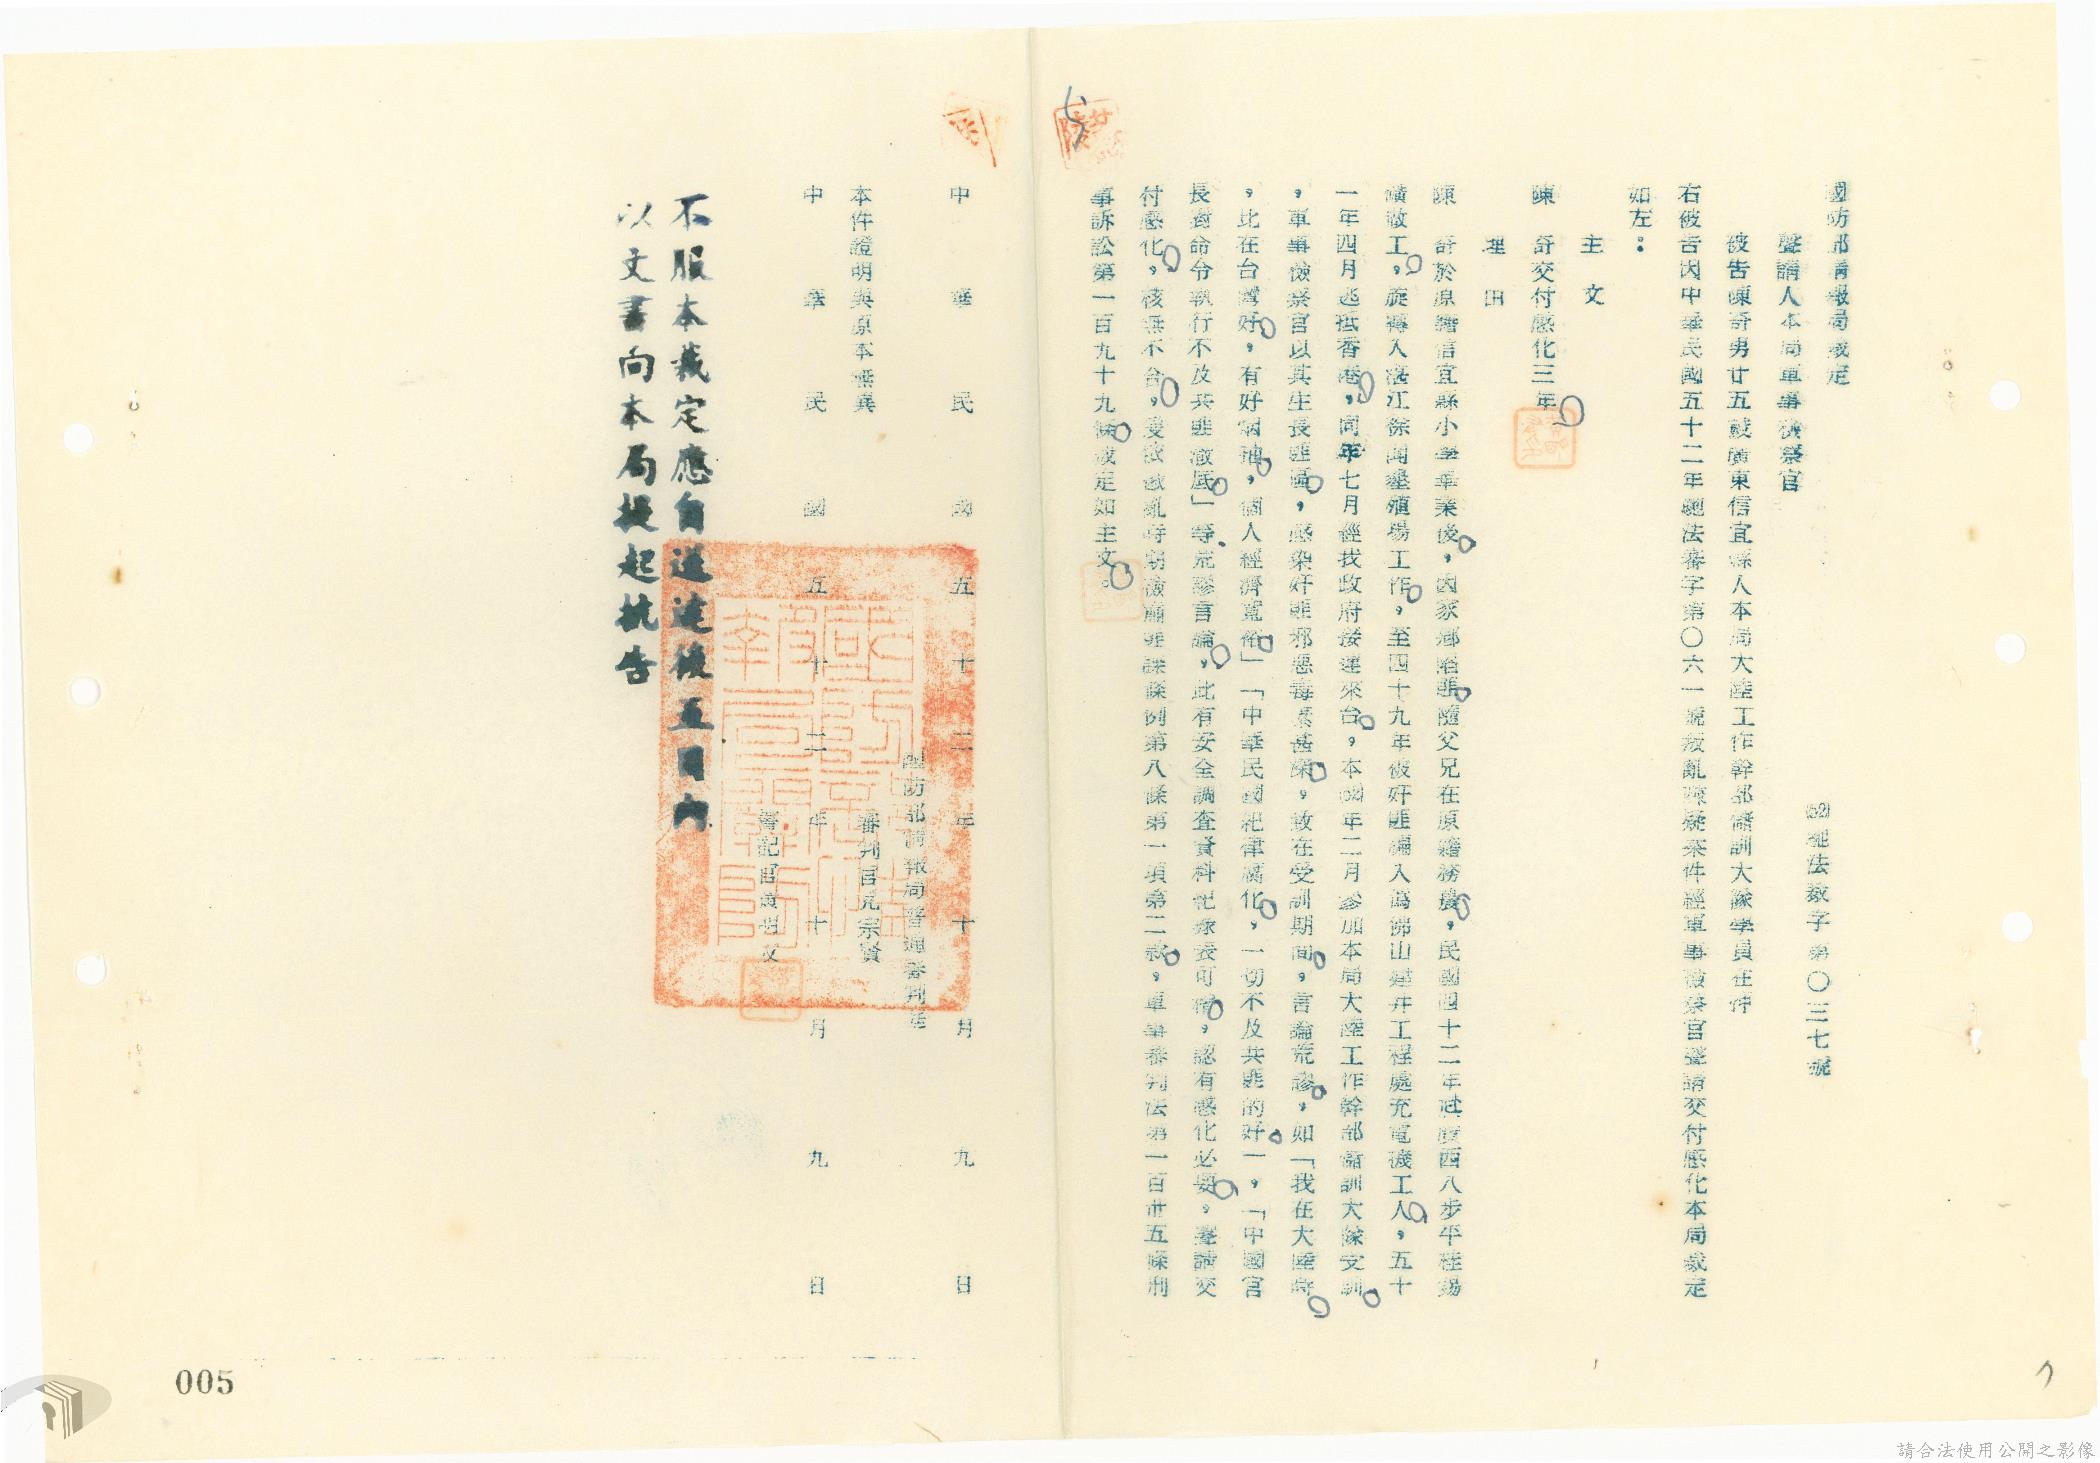 國防部情報局裁定
(52)法裁字第〇三七號
聲請人本局軍事檢察官
被告陳 男廿五歲廣東信宜縣人本局大陸工作幹部儲訓大隊學員在押
右被告因中華民國五十二年 法審字第〇六一號叛亂嫌疑案件經軍事檢察官聲請交付感化本局裁定
如左：
主文
陳 交付感化三年。
理由
陳 於原籍信宜縣小學畢業後，因家鄉陷匪隨父兄在原籍務農，民國四十二年 廣西八步平桂錫
礦做工，旋轉入湛江徐聞墾殖場工作，至四十九年被奸匪編入為佛山建井工程處充電機工人，五十
一年四月逃抵香港，同年七月經我政府接運來台，本(52)年二月參加本局大陸工作幹部儲訓大隊受訓
，軍事檢察官以其生長匪區，感染奸匪邪惡毒素甚深，故在受訓期間，言論荒謬，如「我在大陸時
，比在台灣好，有好 油，個人經濟寬裕」「中華民國紀律腐化，一切不及共匪的好」，「中國官
長對命令執行不及共匪澈底」等荒謬言論，此有安全調查資料記錄表可稽，認有感化必要，聲請交
付感化，核無不合，爰依戡亂時期檢肅匪諜條例第八條第一項第二款，軍事審判法第一百廿五條刑
事訴訟第一百九十九條裁定如主文。
中華民國五十二年十月九日
國防部情報局普通審判庭
審判官 宗賢
本件證明與原本無異
中華民國五十二年十月九日
書記官 文
不服本裁定應自送達後五日內
以文書向本局提起抗告
國防部情報局
005
請合法使用公開之影像